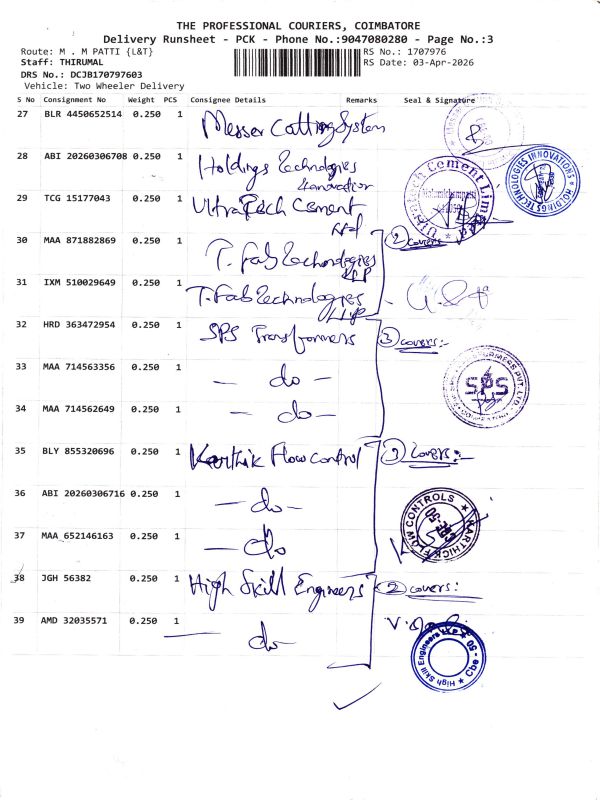 THE PROFESSIONAL COURIERS, COIMBATORE
Delivery Runsheet - PCK - Phone No.:9047080280 - Page No.:3
Route: M . M PATTI {L&T} RS No.: 1707976
Staff: THIRUMAL RS Date: 03-Apr-2026
DRS No.: DCJB170797603
Vehicle: Two Wheeler Delivery
S No Consignment No Weight PCS Consignee Details Remarks Seal & Signature
27 BLR 4450652514 0.250 1 Messer Cutting System
28 ABI 20260306708 0.250 1 Holdings Technologies
Innovation
HOLDINGS TECHNOLOGIES INNOVATIONS
29 TCG 15177043 0.250 1 UltraTech Cement
Ltd
UltraTech Cement Limited
30 MAA 871882869 0.250 1 T. Fab Technologies
LLP
2 covers
31 IXM 510029649 0.250 1 T. Fab Technologies
LLP
32 HRD 363472954 0.250 1 SPS Transformers 3 covers:-
33 MAA 714563356 0.250 1 — do —
SPS
34 MAA 714562649 0.250 1 — do —
35 BLY 855320696 0.250 1 Karthik Flow control 3 covers:-
36 ABI 20260306716 0.250 1 — do —
KARTHICK FLOW CONTROLS
37 MAA 652146163 0.250 1 — do —
38 JGH 56382 0.250 1 High Skill Engineers 2 covers:
39 AMD 32035571 0.250 1 — do —
High Skill Engineers Cbe - 50